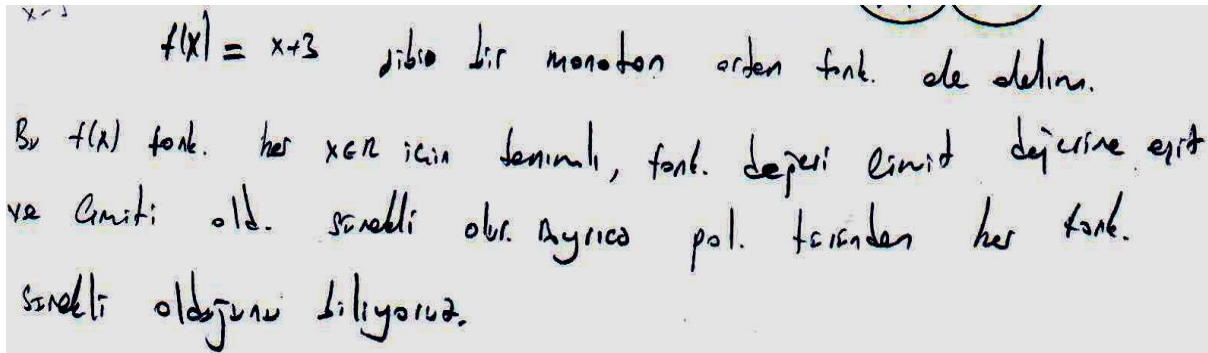 f(x) = x+3 gibi bir monoton artan fonk. ele alalım.
Bu f(x) fonk. her x∈R için tanımlı, fonk. değeri limit değerine eşit
ve limiti old. sürekli olur. Ayrıca pol. türünden her fonk.
sürekli olduğunu biliyoruz.